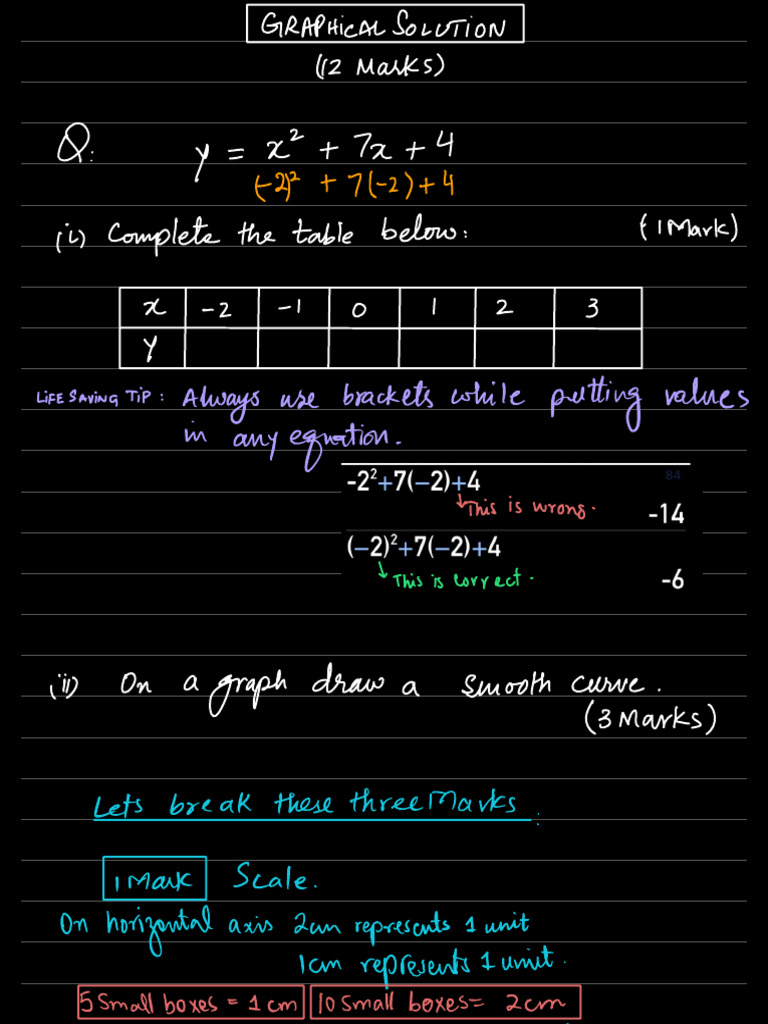 GRAPHICAL SOLUTION
(12 Marks)
Q: y = x² + 7x + 4
(-2)² + 7(-2) + 4
(i) Complete the table below: (1 Mark)
x -2 -1 0 1 2 3
y
LIFE SAVING TIP: Always use brackets while putting values
in any equation.
-2²+7(-2)+4 84
This is wrong. -14
(-2)²+7(-2)+4
This is correct. -6
(ii) On a graph draw a smooth curve.
(3 Marks)
Lets break these three Marks:
1 Mark Scale.
On horizontal axis 2cm represents 1 unit
1cm represents 1 unit.
5 Small boxes = 1 cm 10 Small boxes = 2cm